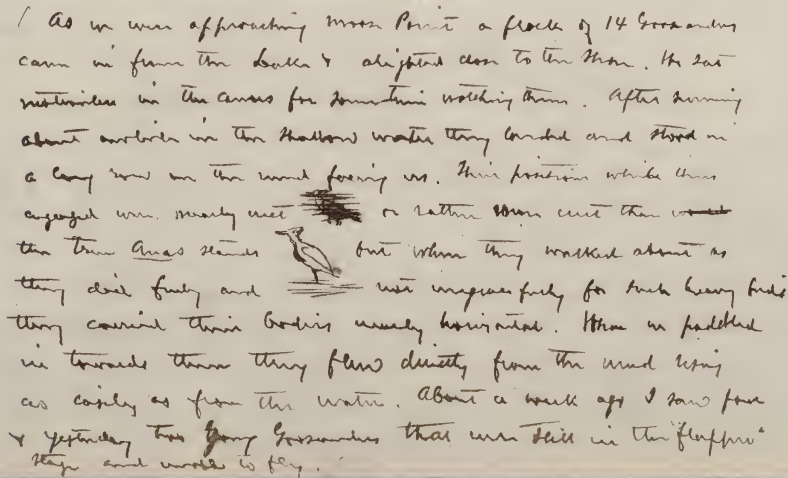 / As we were approaching Moose Point a flock of 14 Goosanders
came in from the Lake & alighted close to the shore. We sat
motionless in the canoe for some time watching them. After swimming
about awhile in the shallow water they landed and stood in
a long row on the mud facing us. Their positions while thus
engaged were nearly erect or rather more erect than would
the true Anas stands but when they walked about as
they did freely and not ungracefully for such heavy birds
they carried their bodies nearly horizontal. When we paddled
in towards them they flew directly from the mud rising
as easily as from the water. About a week ago I saw four
& yesterday two young Goosanders that were still in the "flapper"
stage and unable to fly.